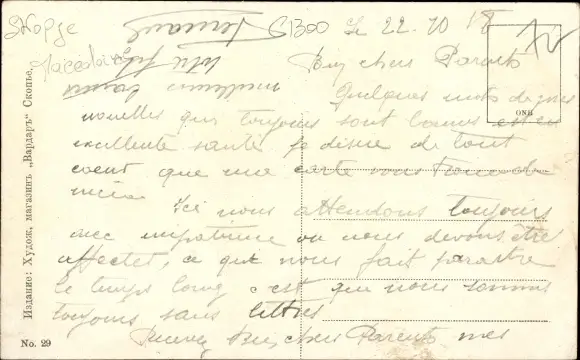 Skopje
Macédoine
G1300
Le 22-10 18
Fernand
votre fils
meilleurs baisers
Bien chers Parents
Quelques mots de mes
nouvelles qui toujours sont bonnes et en
excellente santé je désire de tout
coeur que ma carte vous trouve de
même
Ici nous attendons toujours
avec impatience où nous devons être
affecter, ce que nous fait paraître
le temps long c'est que nous sommes
toujours sans lettres
Recevez Bien chers Parents mes
No. 29
Издание: Худож. магазинъ „Вардаръ" Скопье.